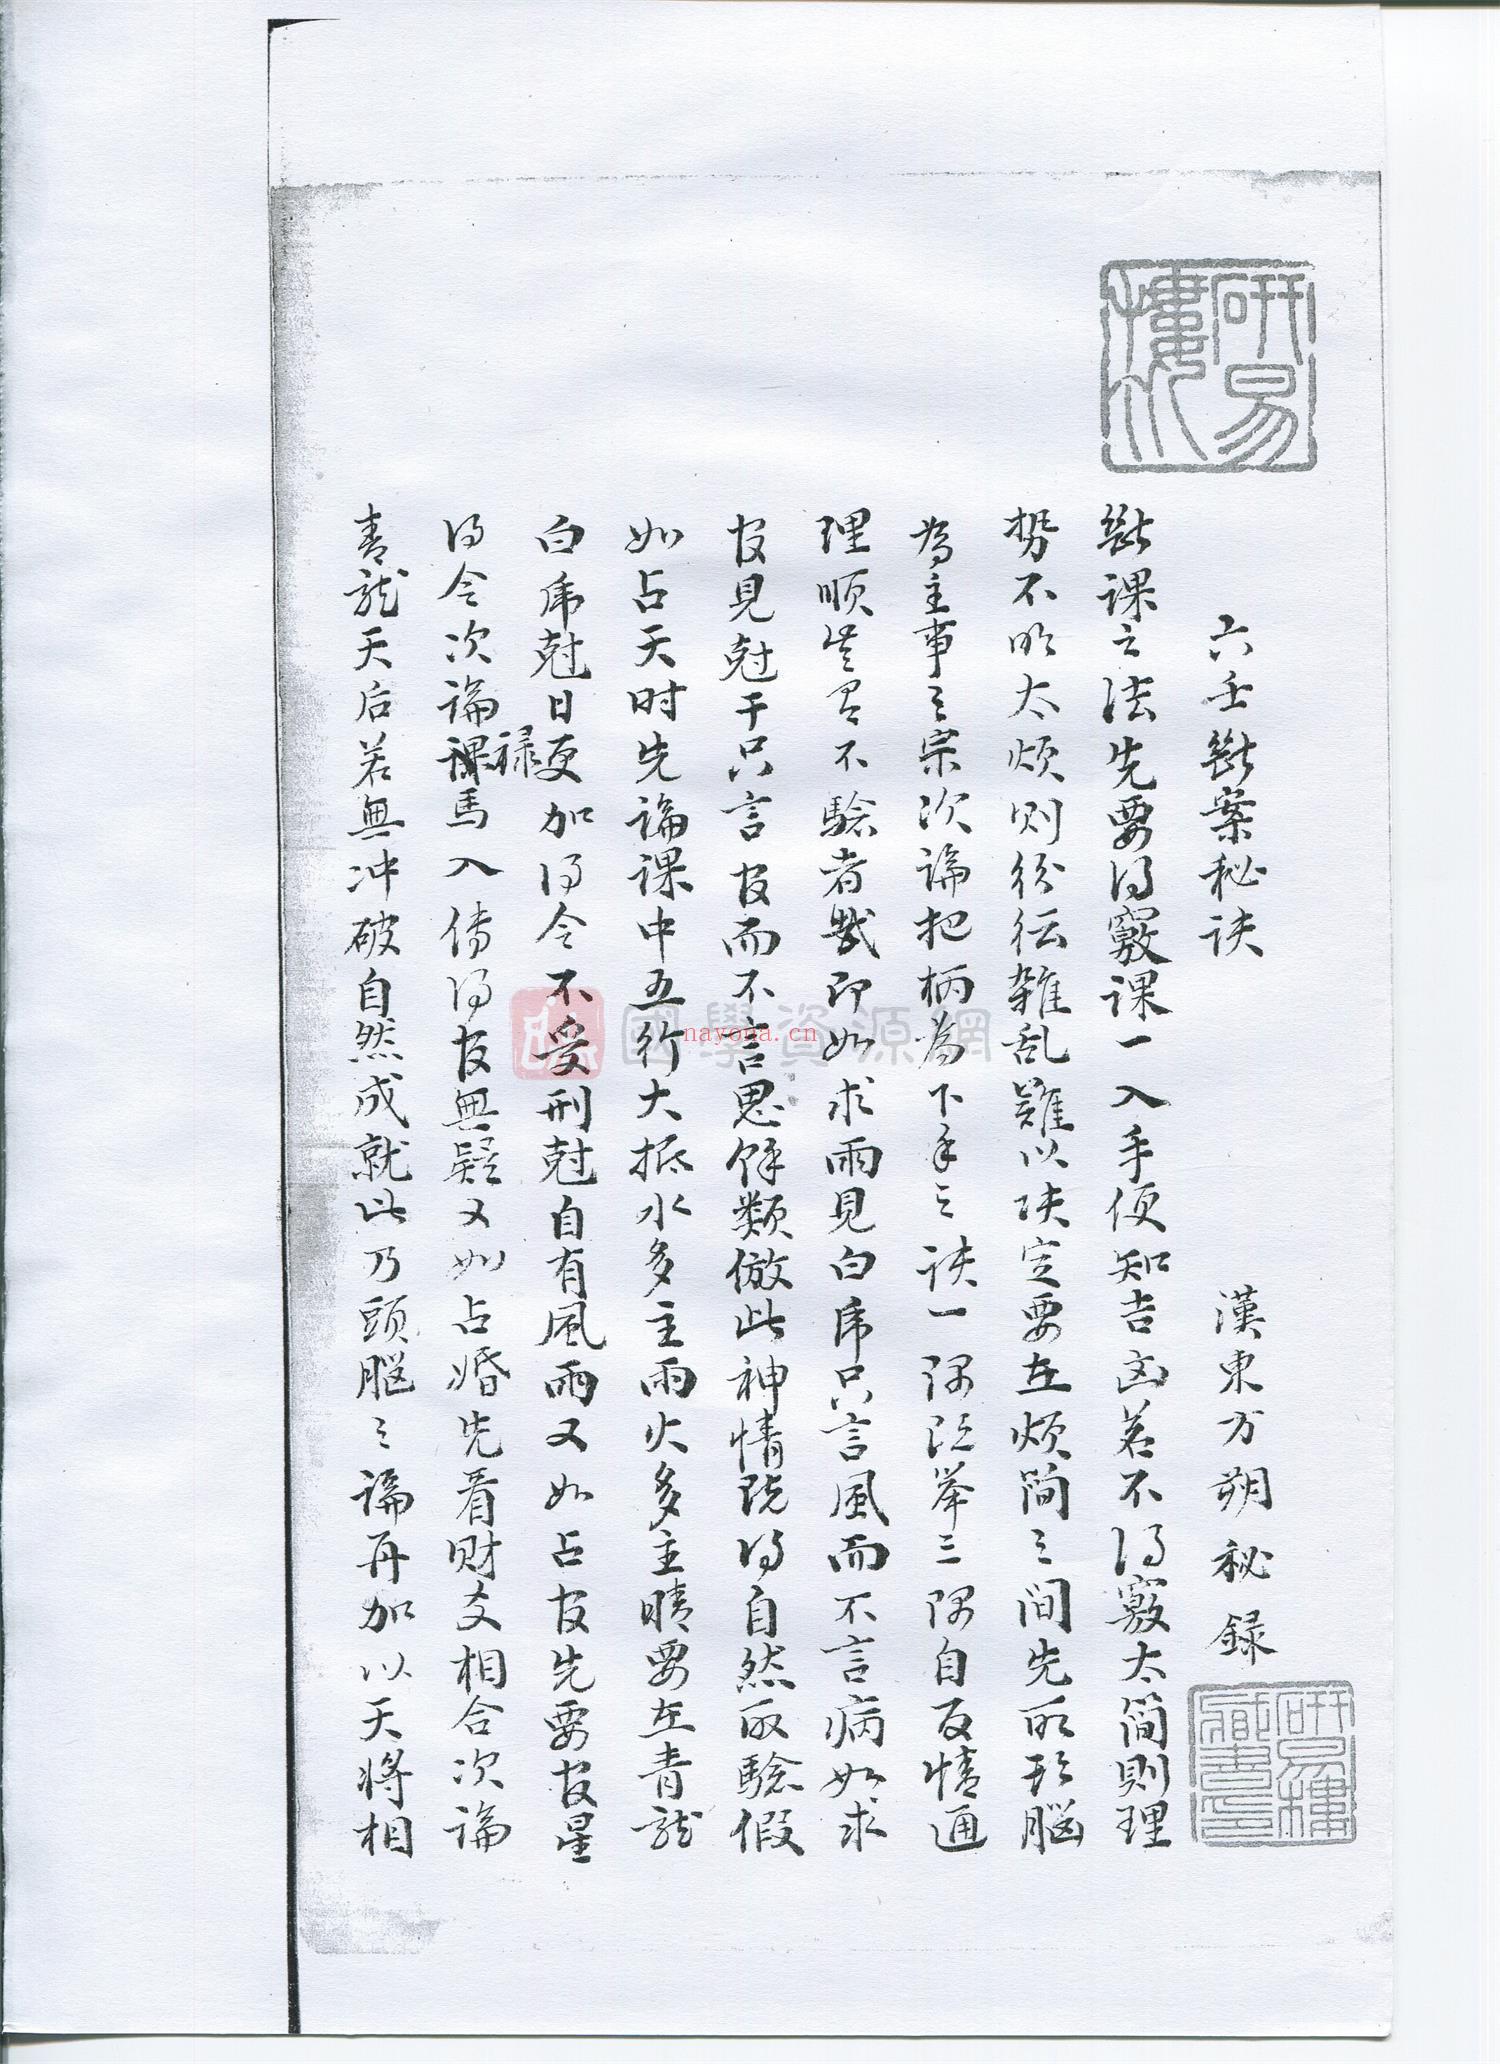 研易樓
六壬斷案秘訣 漢東方朔秘録
斷課之法先要得竅課一入手便知吉凶若不得竅太簡則理
势不明太烦则纷纭雜乱難以决定要在烦简之间先明形腦
為主事之宗次論把柄為下手之訣一隅既举三隅自反情通
理順岂有不驗者哉即如求雨見白虎只言風而不言病如求
官見尅干只言官而不言鬼餘類倣此神情既得自然取驗假
如占天时先論課中五行大抵水多主雨火多主晴要在青龍
白虎尅日更加得令不受刑尅自有風雨又如占官先要官星
得令次論禄馬入傳得官無疑又如占婚先看财爻相合次論
青龍天后若無冲破自然成就此乃頭腦之論再加以天将相
研易樓藏書印
國學資源網
nayona.cn